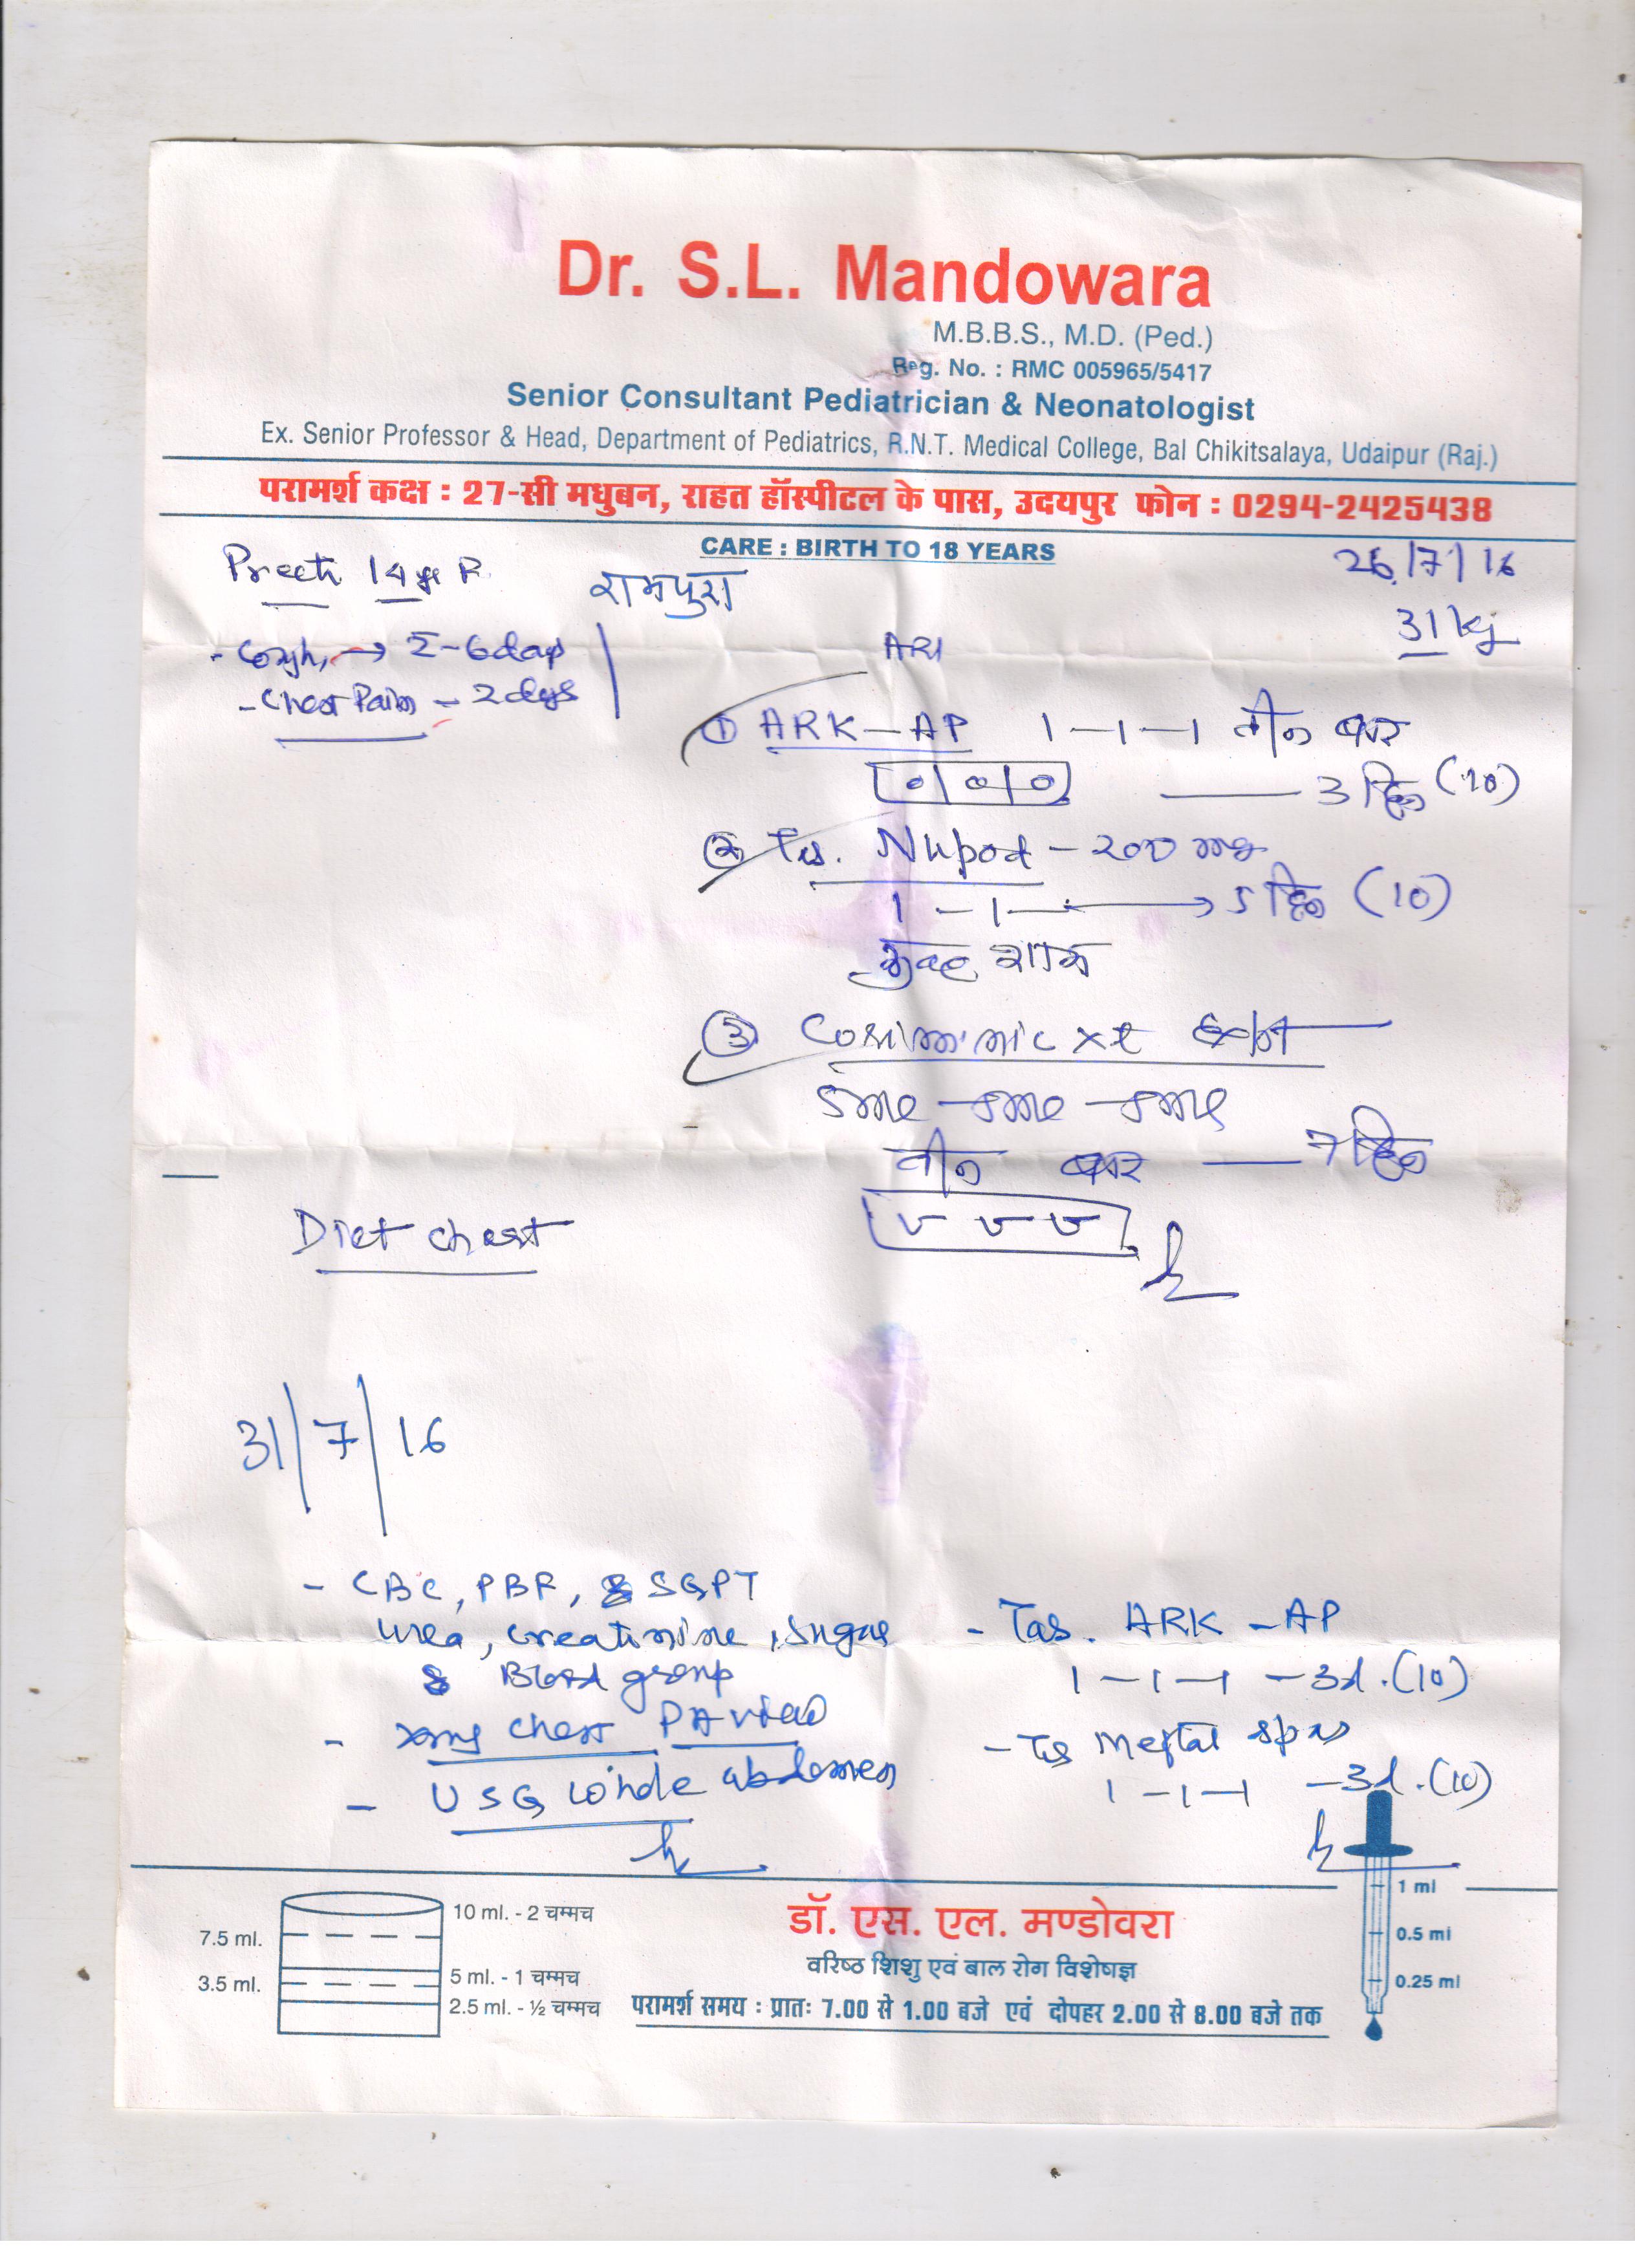 Dr. S.L. Mandowara
M.B.B.S., M.D. (Ped.)
Reg. No. : RMC 005965/5417
Senior Consultant Pediatrician & Neonatologist
Ex. Senior Professor & Head, Department of Pediatrics, R.N.T. Medical College, Bal Chikitsalaya, Udaipur (Raj.)
परामर्श कक्ष : 27-सी मधुबन, राहत हॉस्पीटल के पास, उदयपुर फोन : 0294-2425438
CARE : BIRTH TO 18 YEARS
Preeti 14
रामपुरा
26/7/16
31 kg
- Cough → 5-6 days
- Chest Pain - 2 days
ARI
① ARK-AP 1-1-1 तीन बार
3 दिन (10)
② Nupod - 200 mg
1-1 → 5 दिन (10)
सुबह शाम
③
5ml - 5ml - 5ml
तीन बार - 7 दिन
Diet
31/7/16
- CBC, PBF, SGPT
Urea, creatinine, sugar
& Blood group
- Xray chest PA view
- USG whole abdomen
- Tab. ARK-AP
1-1-1 - 3d. (10)
- Tab Meftal spas
1-1-1 - 3d. (10)
10 ml. - 2 चम्मच
7.5 ml.
5 ml. - 1 चम्मच
3.5 ml.
2.5 ml. - ½ चम्मच
डॉ. एस. एल. मण्डोवरा
वरिष्ठ शिशु एवं बाल रोग विशेषज्ञ
परामर्श समय : प्रातः 7.00 से 1.00 बजे एवं दोपहर 2.00 से 8.00 बजे तक
1 ml
0.5 ml
0.25 ml